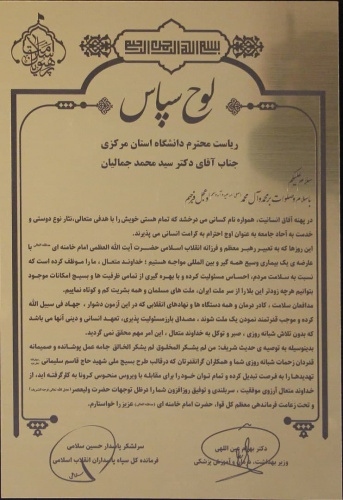 بسم الله الرحمن الرحیم
لوح سپاس
ریاست محترم دانشگاه استان مرکزی
جناب آقای دکتر سید محمد جمالیان
سلام علیکم
با سلام و صلوات بر محمد و آل محمد
در پهنه آقای انسانیت، همواره نام کسانی می درخشد که تمام هستی خویش را با هدفی متعالی، نثار نوع دوستی و
خدمت به آحاد جامعه به عنوان اوج احترام به کرامت انسانی می پذیرند.
این روزها که به تعبیر رهبر معظم و فرزانه انقلاب اسلامی حضرت آیت الله العظمی امام خامنه ای
عارضه ی یک بیماری وسیع همه گیر و بین المللی مواجه هستیم؛ خداوند متعال، ما را موظف کرده است که
نسبت به سلامت مردم، احساس مسئولیت کرده و با بهره گیری از تمامی ظرفیت ها و بسیج امکانات موجود
بتوانیم هرچه زودتر این بلا را از سر ملت ایران، ملت های مسلمان و همه بشریت کم و کوتاه نماییم.
مدافعان سلامت، کادر درمان و همه دستگاه ها و نهادهای انقلابی که در این آزمون دشوار، جهاد فی سبیل الله
کرده و موجب قدرتمند نمودن یک ملت شوند، مصداق بارز مسئولیت پذیری، تعهد انسانی و دینی آنها می باشد
که بدون تلاش شبانه روزی، صبر و توکل به خداوند متعال، این امر مهم محقق نمی گردید.
بدینوسیله به توصیه ی حدیث شریف: من لم یشکر المخلوق لم یشکر الخالق جامه عمل پوشانده و صمیمانه
قدردان زحمات شبانه روزی شما و همکاران گرانقدرتان که در قالب طرح بسیج ملی شهید حاج قاسم سلیمانی
تهدیدها را به فرصت تبدیل کرده و تمام توان خود را برای مقابله با ویروس منحوس کرونا به کار گرفته اید، از
خداوند متعال آرزوی موفقیت، سربلندی و توفیق روزافزون شما را در ظل توجهات حضرت ولیعصر
و تحت زعامت فرماندهی معظم کل قوا، حضرت امام خامنه ای عزیز را خواستارم.
دکتر
وزیر بهداشت، درمان و آموزش پزشکی
سرلشکر پاسدار حسین سلامی
فرمانده کل سپاه پاسداران انقلاب اسلامی